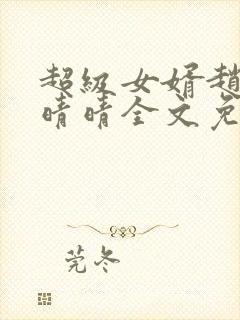 超级女婿趙
晴晴全文免
莞冬